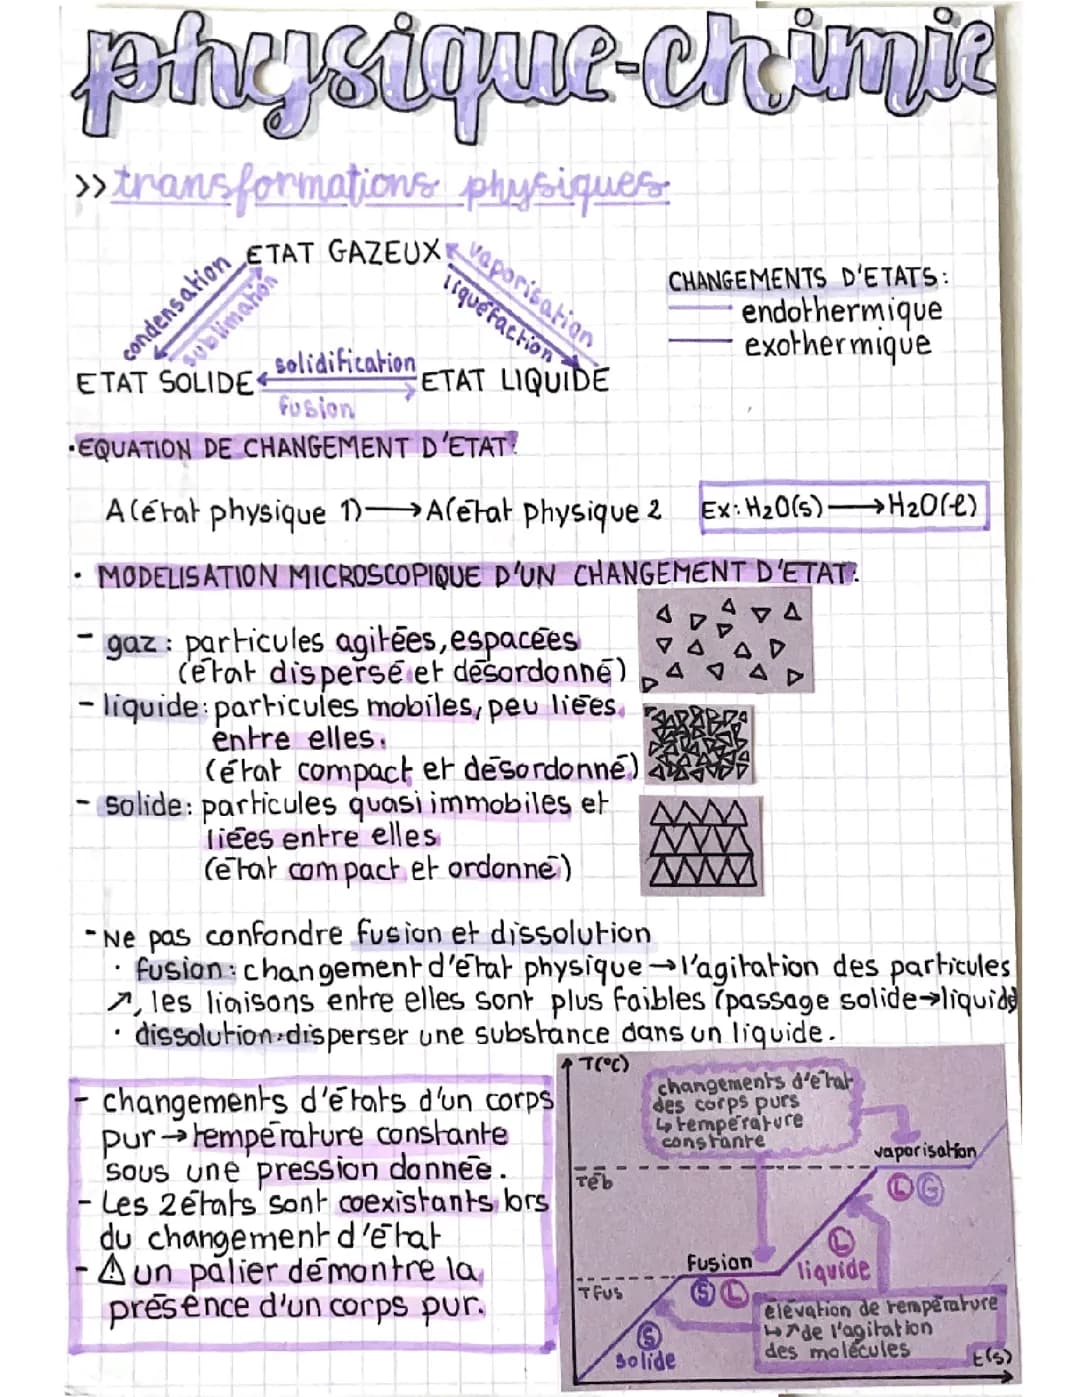 physique-chimie
>> transformations physiques
ETAT GAZEUX
condensation
sublimation
vaporisation
liquéfaction
CHANGEMENTS D'ETATS:
endothermique
exothermique
solidification
ETAT SOLIDE
ETAT LIQUIDE
fusion
•EQUATION DE CHANGEMENT D'ETAT:
A(état physique 1)→A(état physique 2
Ex: H2O(s)→H2O(l)
• MODELISATION MICROSCOPIQUE D'UN CHANGEMENT D'ETAT:
- gaz: particules agitées, espacées
(état dispersé et désordonné)
- liquide: particules mobiles, peu liées
entre elles.
(état compact et désordonné)
- solide: particules quasi immobiles et
liées entre elles
(état compact et ordonné)
- Ne pas confondre fusion et dissolution
• fusion: changement d'état physique → l'agitation des particules
↗, les liaisons entre elles sont plus faibles (passage solide→liquide
• dissolution: disperser une substance dans un liquide.
- changements d'états d'un corps
pur → température constante
sous une pression donnée.
- Les 2 états sont coexistants lors
du changement d'état
- ⚠ un palier démontre la
présence d'un corps pur.
T(°C)
changements d'état
des corps purs
↳ température
constante
vaporisation
Téb
L G
L
liquide
fusion
TFus
S L
S
solide
élévation de température
↳ ↗ de l'agitation
des molécules
t(s)